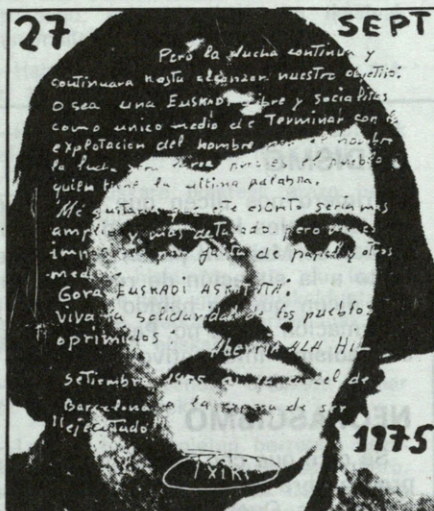 27 SEPT
Pero la lucha continua y
continuara hasta alcanzar nuestro objetivo:
O sea una EUSKADI Libre y socialista
como unico medio de Terminar con la
explotacion del hombre por el hombre
la lucha es el pueblo
quien tiene la ultima palabra.
Me gustaria que este escrito seria mas
amplio y mas detallado pero me es
imposible por falta de papel y otros
medios.
Gora EUSKADI ASKATUTA!
Viva la solidaridad de los pueblos
oprimidos. ABERRIA ALA HIL
Setiembre 1975 carcel de
Barcelona a la espera de ser
ejecutado
1975
Txiki